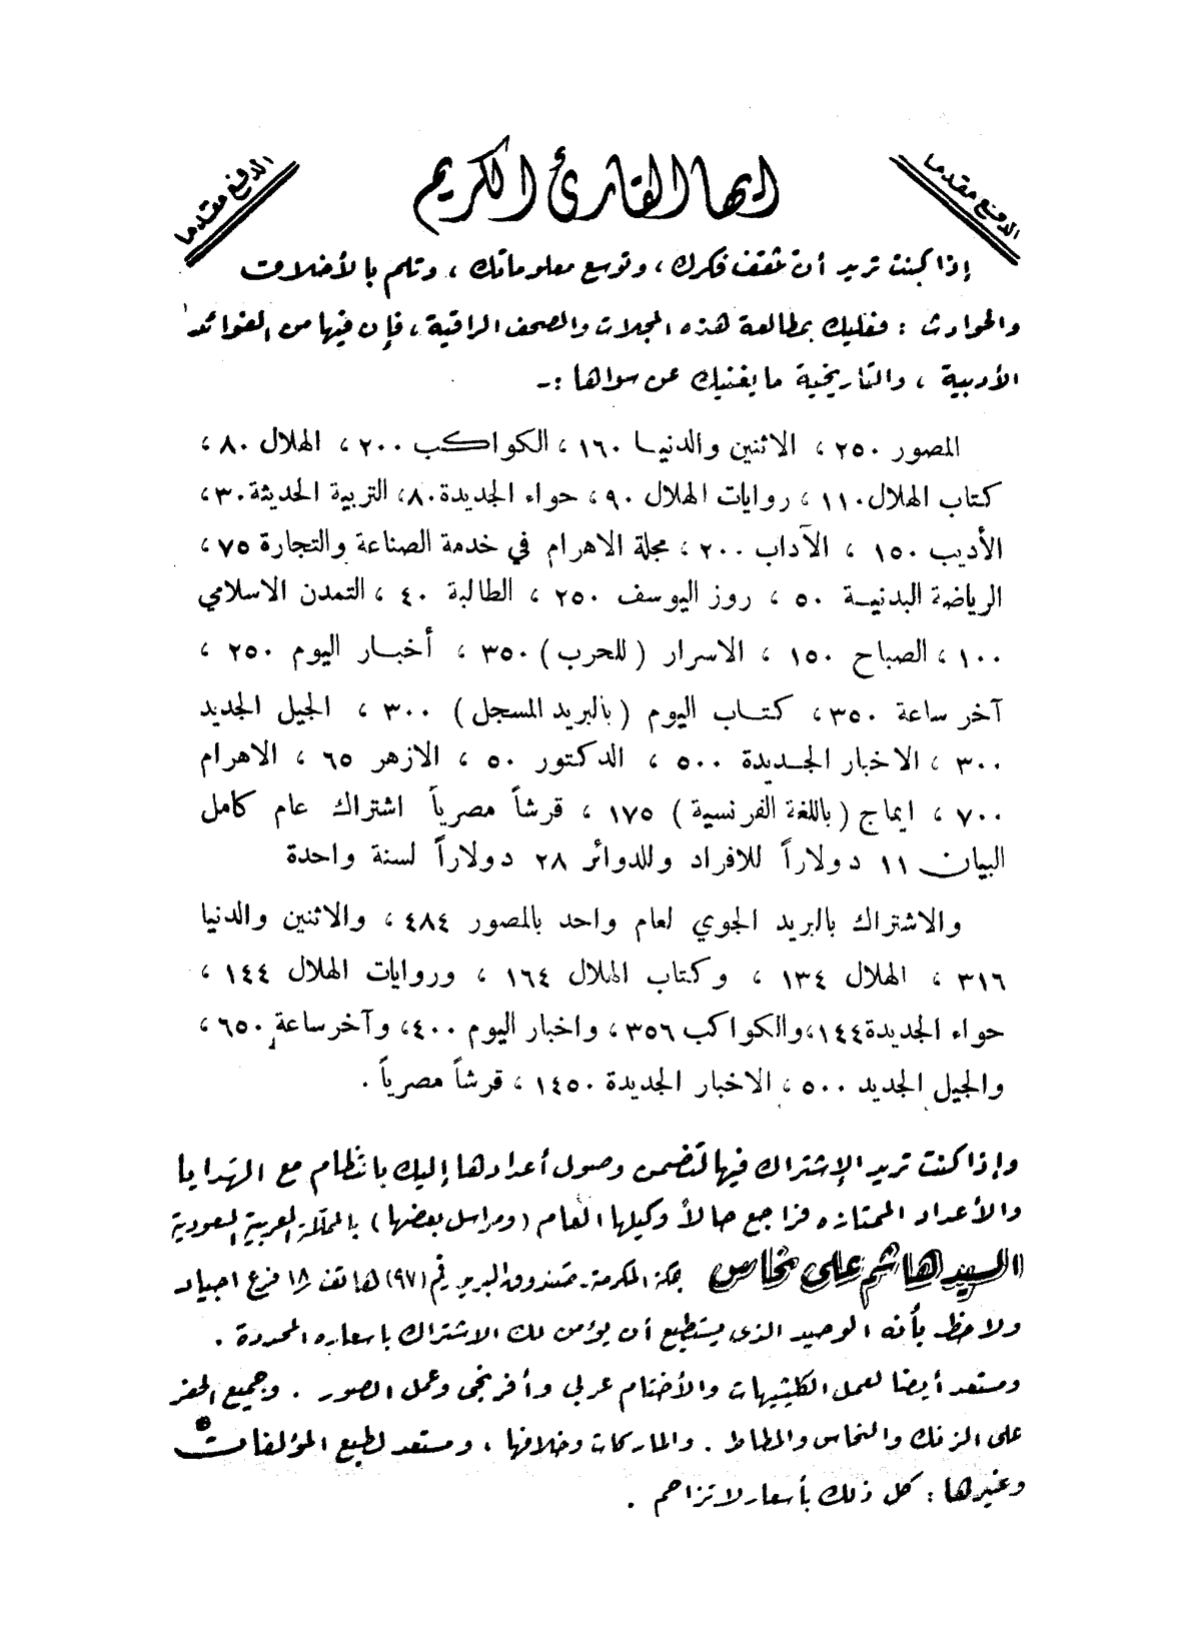 الدفع مقدما
ايها القارئ الكريم
الدفع مقدما
إذا كنت تريد أن تثقف فكرك، وتوسع معلوماتك، وتلم بالأخلاق
والحوادث : فعليك بمطالعة هذه المجلات والصحف الراقية، فإن فيها من الفوائد
الأدبية ، والتاريخية ما يغنيك عن سواها :ـ
المصور ٢٥٠ ، الاثنين والدنيا ١٦٠ ، الكواكب ٢٠٠ ، الهلال ٨٠ ،
كتاب الهلال ١١٠ ، روايات الهلال ٩٠ ، حواء الجديدة ٨٠، التربية الحديثة ٣٠ ،
الأديب ١٥٠ ، الآداب ٢٠٠ ، مجلة الاهرام في خدمة الصناعة والتجارة ٧٥ ،
الرياضة البدنية ٥٠ ، روز اليوسف ٢٥٠ ، الطالبة ٤٠ ، التمدن الاسلامي
١٠٠ ، الصباح ١٥٠ ، الاسرار ( للحرب ) ٣٥٠ ، أخبار اليوم ٢٥٠ ،
آخر ساعة ٣٥٠ ، كتاب اليوم ( بالبريد المسجل ) ٣٠٠ ، الجيل الجديد
٣٠٠ ، الاخبار الجديدة ٥٠٠ ، الدكتور ٥٠ ، الازهر ٦٥ ، الاهرام
٧٠٠ ، ايماج ( باللغة الفرنسية ) ١٧٥ ، قرشاً مصرياً اشتراك عام كامل
البيان ١١ دولاراً للافراد وللدوائر ٢٨ دولاراً لسنة واحدة
والاشتراك بالبريد الجوي لعام واحد بالمصور ٤٨٤ ، والاثنين والدنيا
٣١٦ ، الهلال ١٣٤ ، وكتاب الهلال ١٦٤ ، وروايات الهلال ١٤٤ ،
حواء الجديدة ١٤٤، والكواكب ٣٥٦ ، واخبار اليوم ٤٠٠ ، وآخر ساعة ٦٥٠ ،
والجيل الجديد ٥٠٠ ، الاخبار الجديدة ١٤٥٠ ، قرشاً مصرياً .
وإذا كنت تريد الإشتراك فيها لتضمن وصول أعدادها إليك بانتظام مع الهدايا
والأعداد الممتازه فراجع حالاً وكيلها العام ( ومراسل بعضها ) بالمملكة العربية السعودية
السيد هاشم على نحاس بمكة المكرمة ـ صندوق البريد رقم (٩٧) هاتف ١٨ فرع اجياد
ولاحظ بأنه الوحيد الذى يستطيع أن يؤمن لك الاشتراك باسعاره المحددة .
ومستعد أيضا لعمل الكليشيهات والأختام عربي وأفرنجى وعمل الصور . وجميع الحفر
على الزنك والنحاس والمطاط . والماركات وخلافها ، ومستعد لطبع المؤلفات
وغيرها : كل ذلك بأسعار لا تزاحم .